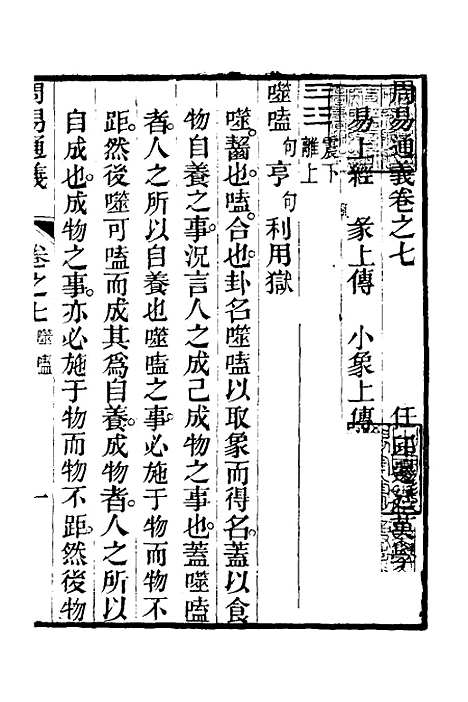 周易通義卷之七
任邱邊廷英學
易上經 彖上傳 小象上傳
震下
離上
噬嗑句亨句利用獄
噬齧也嗑合也卦名噬嗑以取象而得名蓋以食
物自養之事況言人之成己成物之事也蓋噬嗑
者人之所以自養也噬嗑之事必施于物而物不
距然後噬可嗑而成其爲自養成物者人之所以
自成也成物之事亦必施于物而物不距然後物
周易通義 卷之七 噬嗑 一